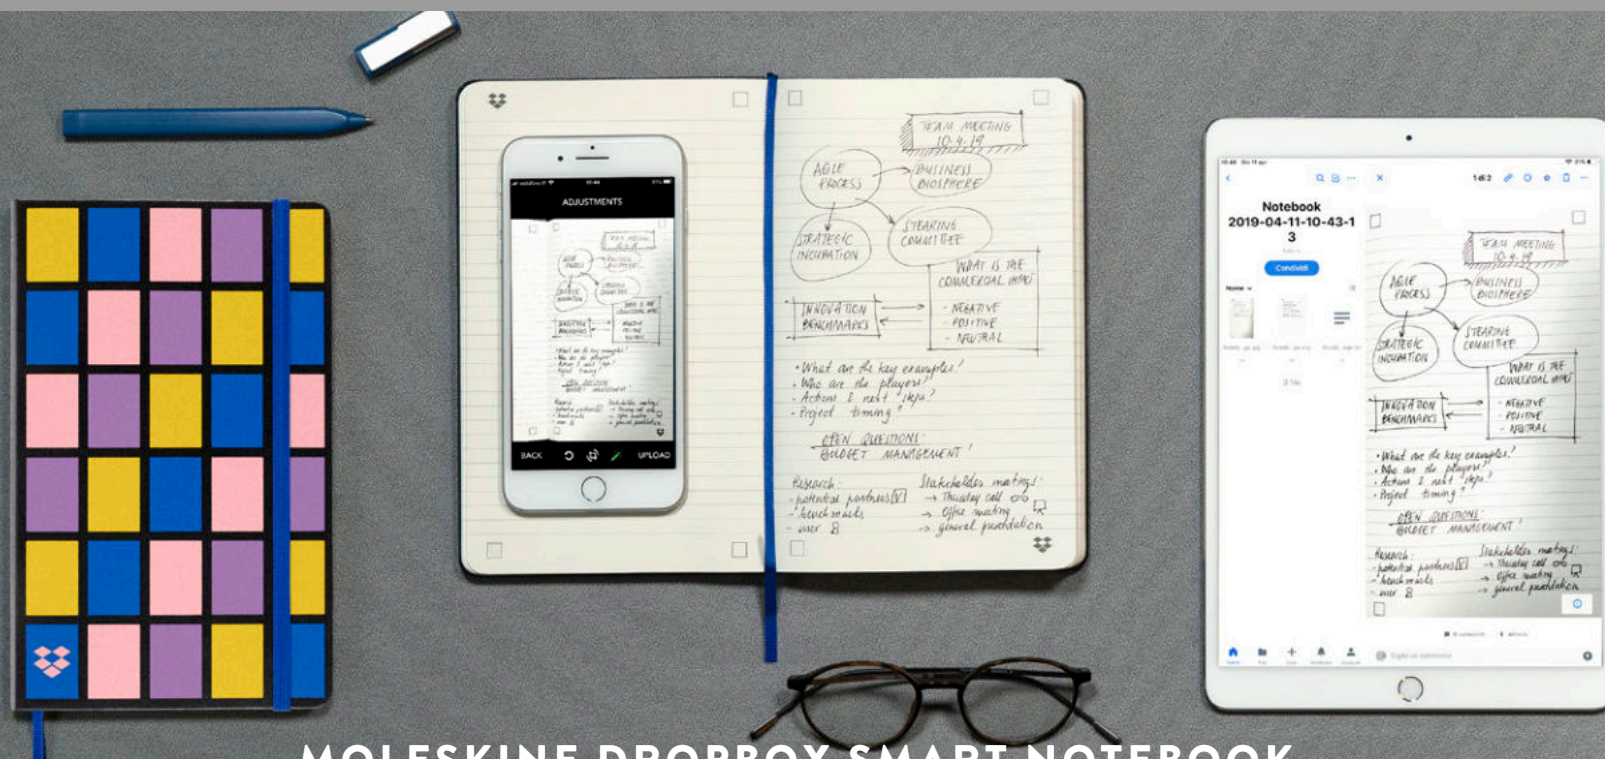 10:44
ADJUSTMENTS
TEAM MEETING
10.4.19
AGILE
PROCESS
BUSINESS
BIOSPHERE
STRATEGIC
INCUBATION
STEARING
COMMITTEE
WHAT IS THE
COMMERCIAL IMPACT
- NEGATIVE
- POSITIVE
- NEUTRAL
INNOVATION
BENCHMARKS
• What are the key examples?
• Who are the players?
• Actions & next steps?
• Project timing?
OPEN QUESTIONS:
BUDGET MANAGEMENT!
Research:
- potential partners
- benchmarks
- user
Stakeholder meetings:
→ Thursday call
→ Office meeting
→ general presentation
BACK
UPLOAD
10:44
1 di 2
Notebook
2019-04-11-10-43-1
3
Condividi
Nome
TEAM MEETING
10.4.19
AGILE
PROCESS
BUSINESS
BIOSPHERE
STRATEGIC
INCUBATION
STEARING
COMMITTEE
WHAT IS THE
COMMERCIAL IMPACT
- NEGATIVE
- POSITIVE
- NEUTRAL
INNOVATION
BENCHMARKS
• What are the key examples?
• Who are the players?
• Actions & next steps?
• Project timing?
OPEN QUESTIONS:
BUDGET MANAGEMENT!
Research:
- potential partners
- benchmarks
- user
Stakeholder meetings:
→ Thursday call
→ Office meeting
→ general presentation
MOLESKINE DROPBOX SMART NOTEBOOK